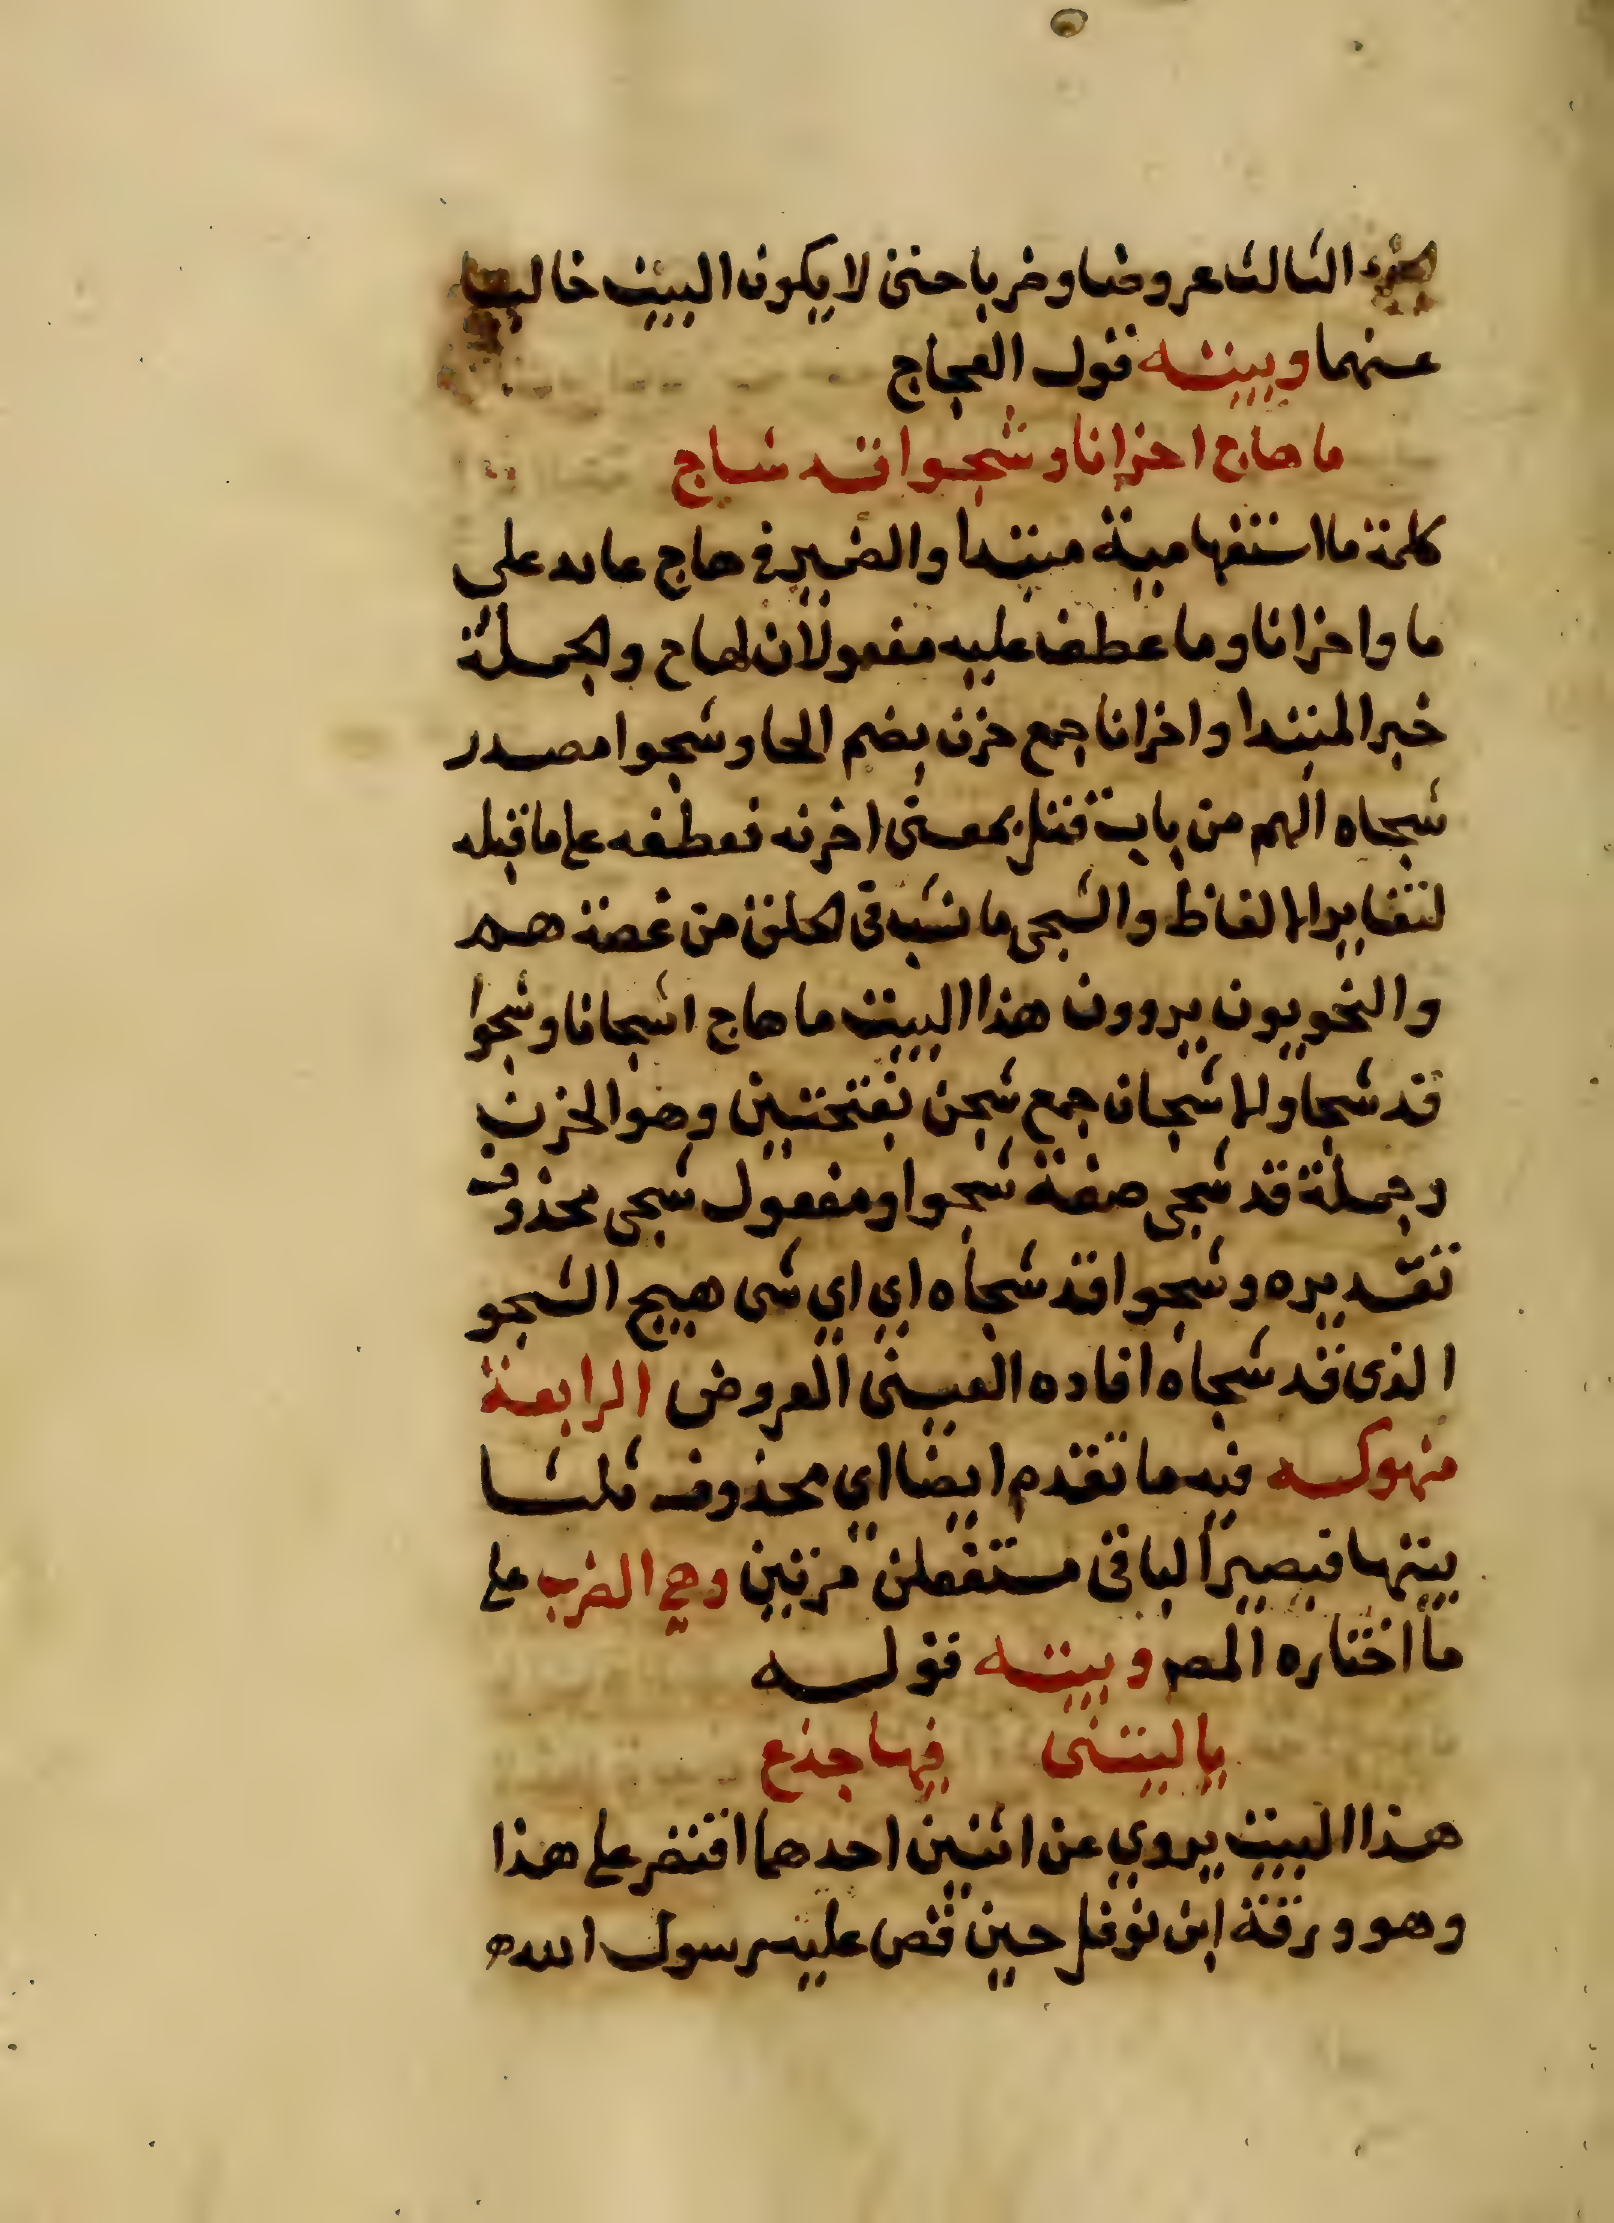 الجزء الثالث عروضا وضربا حتى لا يكون البيت خاليا
عنهما وبيته قول العجاج
ما هاج احزانا وشجوا قد شاج
كلمة ما استفهامية مبتدا والضمير في هاج عايد على
ما واحزانا وما عطف عليه مفعولان لهاج والجملة
خبر المبتدا واحزانا جمع حزن بضم الحا وشجوا مصدر
شجاه الهم من باب قتل بمعنى احزنه فعطفه على ما قبله
لتغاير الالفاظ والشجى ما نشب في الحلق من غصة هم
والنحويون يروون هذا البيت ما هاج اشجانا وشجوا
قد شجا والاشجان جمع شجن بفتحتين وهو الحزن
وجملة قد شجى صفة شجوا ومفعول شجى محذوف
تقديره وشجوا قد شجاه اي اي شى هيج الشجو
الذى قد شجاه افاده العينى العروض الرابعة
منهوكه فيه ما تقدم ايضا اي محذوف ثلثا
بيتها فيصير الباقى مستفعلن مرتين وهي الضرب على
ما اختاره المص وبيته قوله
يا ليتنى فيها جذع
هذا البيت يروي عن اثنين احدهما اقتصر على هذا
وهو ورقة ابن نوفل حين قص عليه رسول الله